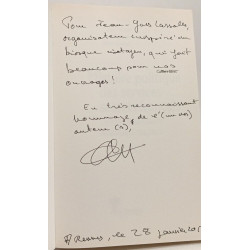 Pour Jean-Yves Lassalle,
organisateur du
kiosque, qui fait
beaucoup pour nos
ouvrages !
En très reconnaissant
hommage de l'(un des)
auteur(s),
Rennes, le 28 janvier